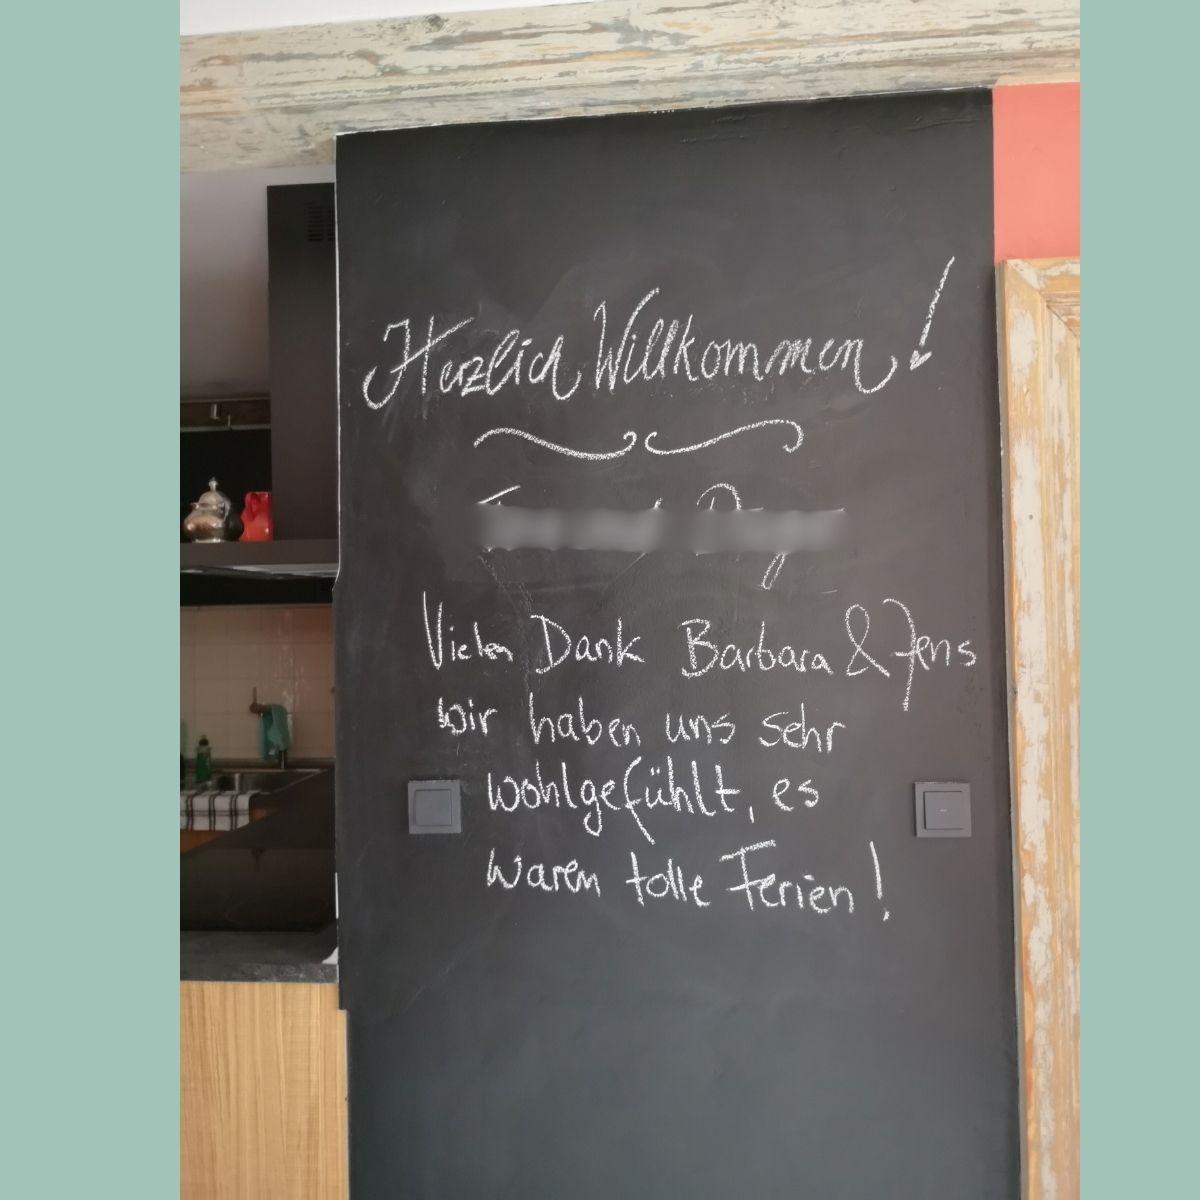 Herzlich Willkommen!
Vielen Dank Barbara & Jens
wir haben uns sehr
wohlgefühlt, es
waren tolle Ferien!